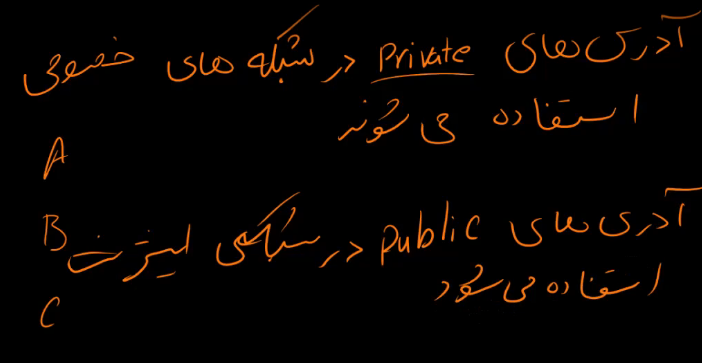 آدرس های Private در شبکه های خصوصی
استفاده می شوند
A
B
آدرس های Public در شبکه ی اینترنت
استفاده می شود
C